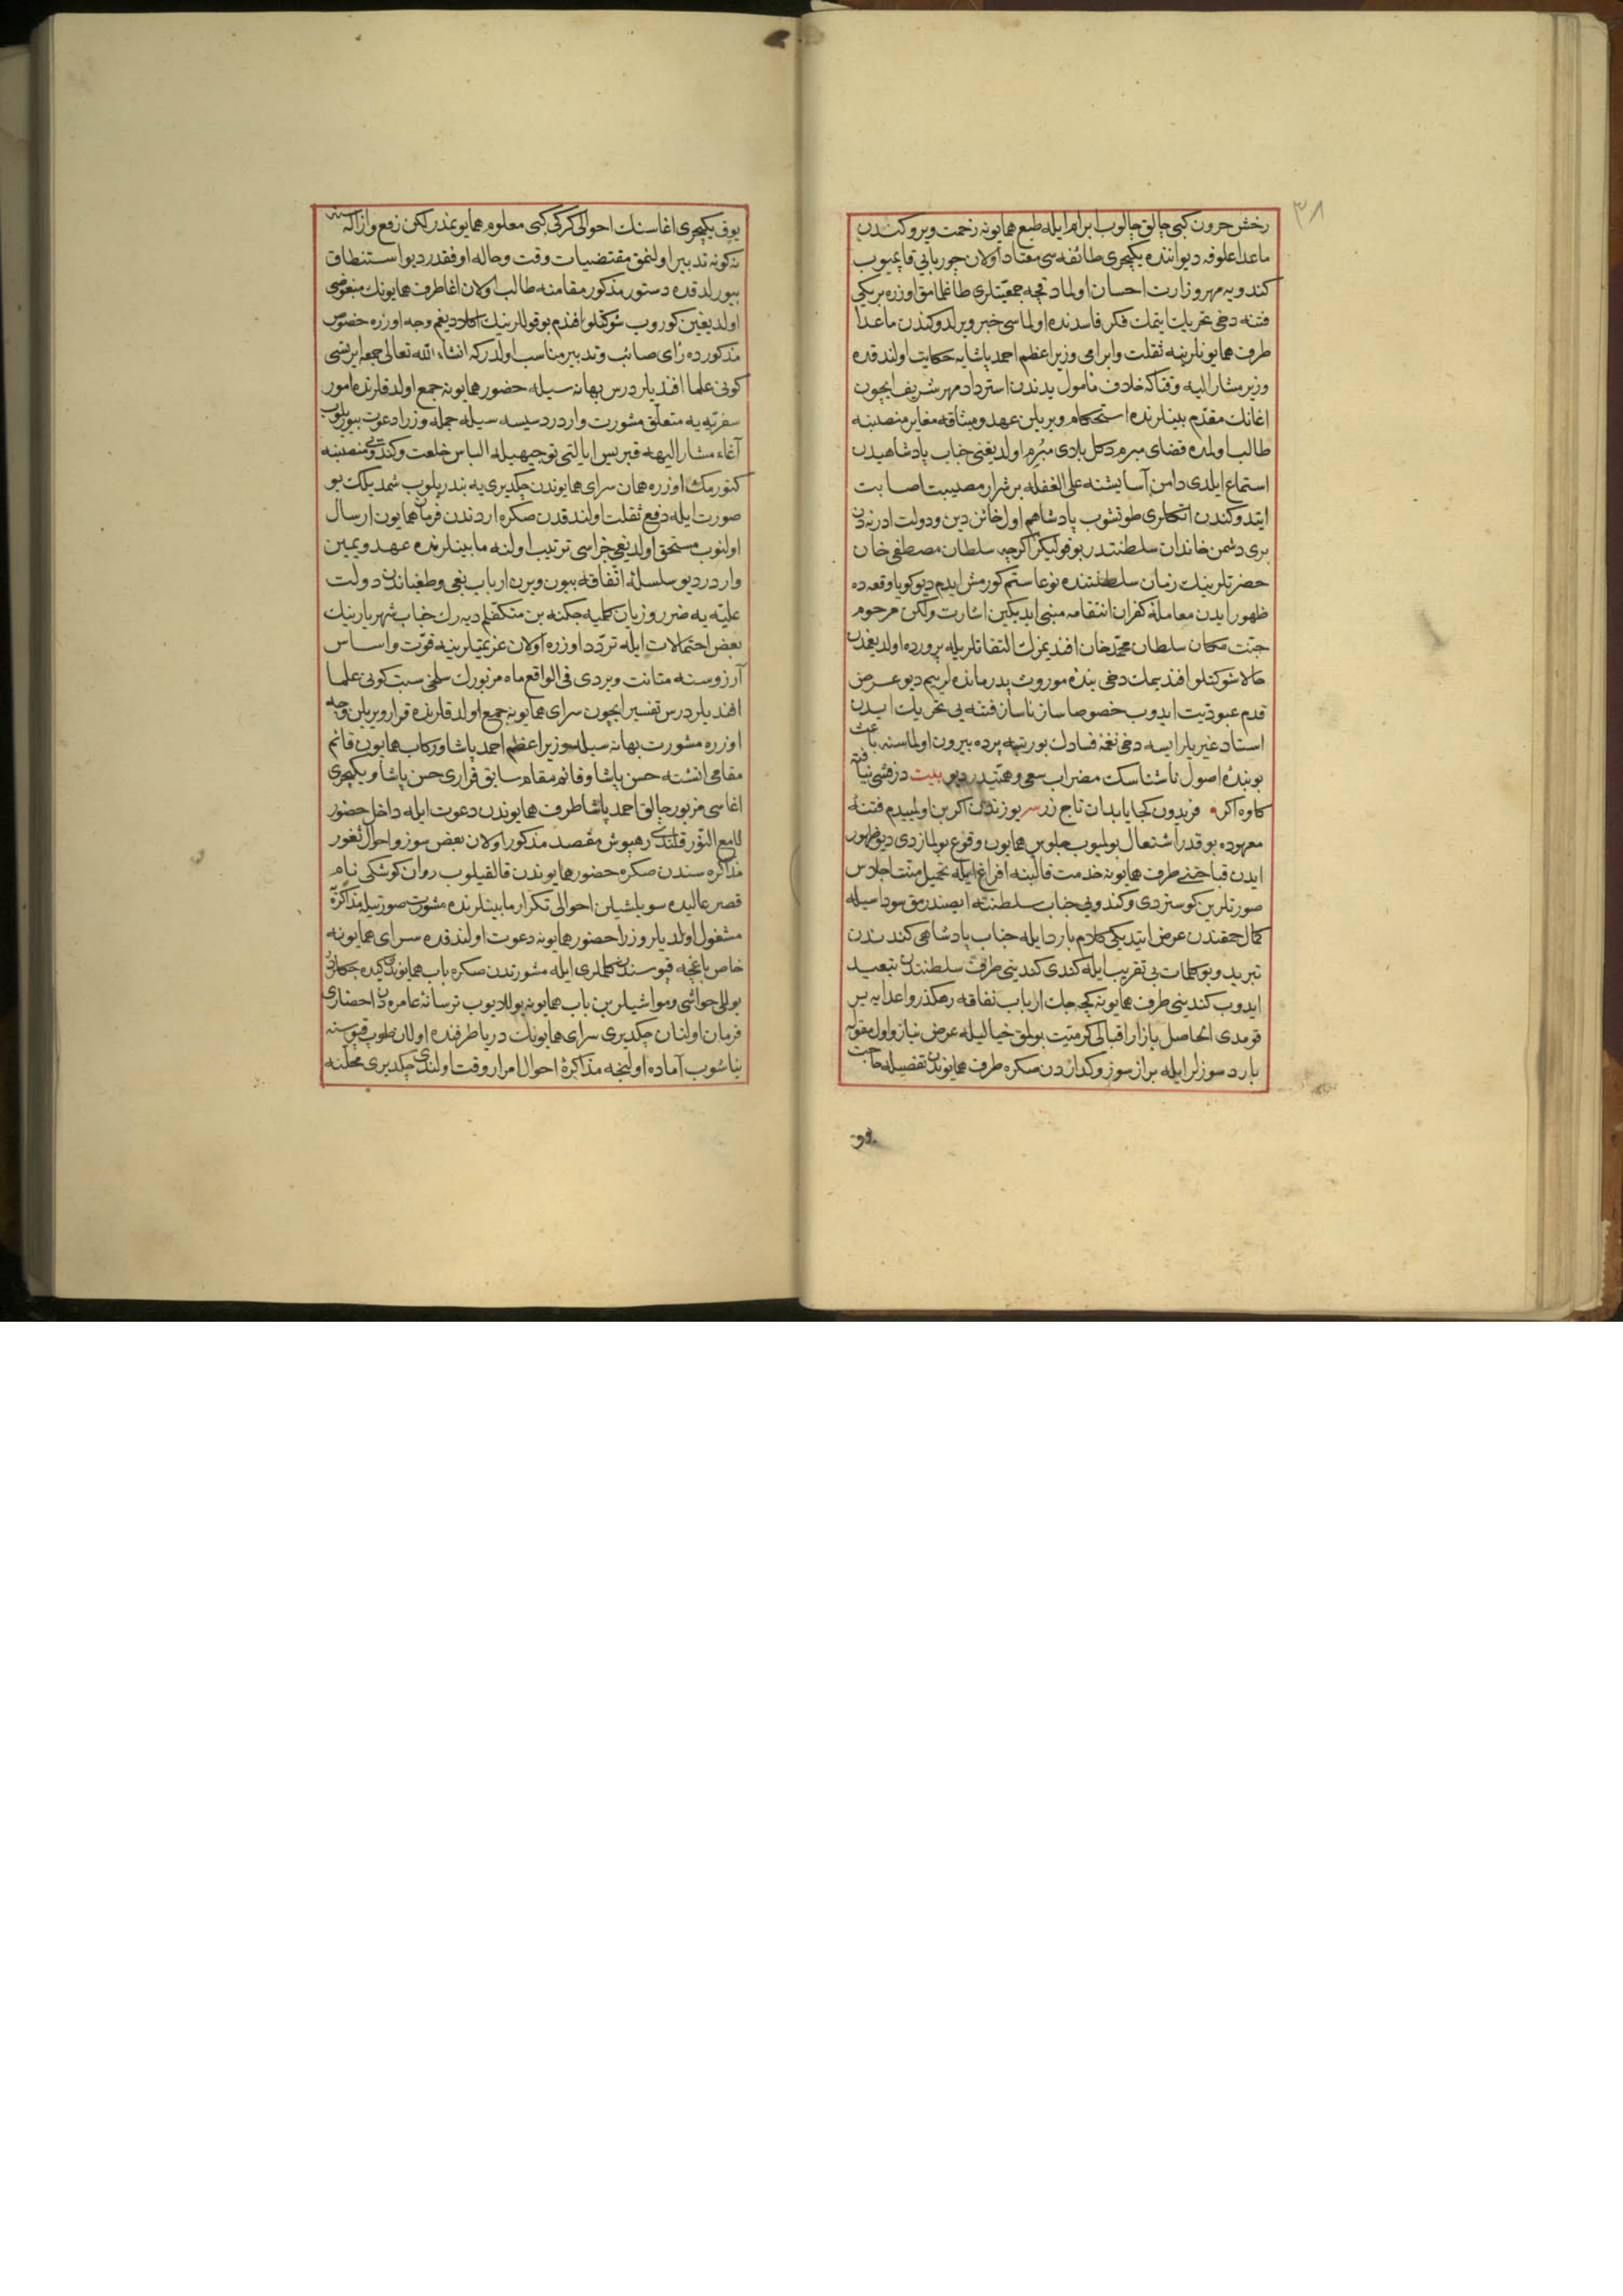 ٣٨
رخش حرون كبى چالق چالوب ابرام ايله طبع همايونه زحمت ويروكندن
ماعدا علوفه ديواننده يكيچرى طائفه سى معتاد اولان چوربايى قاپميوب
كندويه مهر وزارت احسان اولمادقچه جمعيتلرى طاغلمامق اوزره بريكى
فتنه دخى تحريك ايتمك فكر فاسدنده اولماسى خبر ويرلدوكندن ماعدا
طرف همايونلرينه ثقلت وابرامى وزير اعظم احمد پاشايه حكايت اولندقده
وزير مشار اليه وقتاكه خلاف مأمول يدندن استرداد مهر شريف ايچون
اغانك مقدم بينلرنده استحكام ويريلن عهد وميثاقه مغاير منصبنه
طالب اولمده قضاى مبرم دكل بلادى مبرم اولديغنى جناب پادشاهيدن
استماع ايلدى دامن آسايشنه على الغفله بر شرار مصيبت اصابت
ايتدوكندن اتكلرى طوتشوب پادشاهم اول خائن دين ودولت ادرنه دن
برى دشمن خاندان سلطنتدر بوقوليكز اكرچه سلطان مصطفى خان
حضرتلرينك زمان سلطنتنده نوعا ستم كورمش ايدم ديو كويا وقعه ده
ظهور ايدن معامله كفران انتقامه مبنى ايديكين اشارت ولكن مرحوم
جنت مكان سلطان محمد خان افنديمزك التفاتلريله پرورده اولديغمدن
حالا شوكتلو افنديمك دخى بنده موروث پدرمانده لريم ديو عرض
قدم عبوديت ايدوب خصوصا ساز ناساز فتنه يى تحريك ايدن
استاد غيريلر ايسه دخى نغمه فسادك بو رتبه پرده بيرون اولماسنه باعث
بو بنده اصول ناشناسك مضراب سعى وهمتيدر ديو بيت درفشى نيافته
كاوه اكر • فريدون كجا يابد ان تاج زر سر يوزندن اكر بن اولميدم فتنه
معهوده بو قدر اشتعال بولميوب جلوس همايون وقوع بولمازدى ديو ظهور
ايدن قباحتنى طرف همايونه خدمت قالبنه افراغ ايله تحميل منت اجلاس
صورتلرين كوستردى وكندويى جناب سلطنته ايصندرمق سوداسيله
كمال حمقندن عرض ايتديكى كلام بارد ايله جناب پادشاهى كندندن
تبريد وبو كلمات بى تقريب ايله كندى كندينى طرف سلطنتدن تبعيد
ايدوب كندينى طرف همايونه كچه جك ارباب نفاقه رهكذر واعدايه سر
قومدى الحاصل بازار اقبالى كرميت بولمق خياليله عرض نياز واول مقوله
بارد سوزلر ايله براز سوز وكدازدن صكره طرف همايوندن تفصيله حاجت
يوق
يوق يكيچرى اغاسنك احوالى كركى كبى معلوم همايونمذر لكن رفع وازاله سنه
نه كونه تدبير اولنمق مقتضيات وقت وحاله اوفقدر ديو استنطاق
بيورلدقده دستور مذكور مقامنه طالب اولان اغا طرف همايونك منغوضى
اولديغين كوروب شوكتلو افندم بو قوللرينك اكلاديغم وجه اوزره خصوص
مذكورده رأى صائب وتدبير مناسب اولدركه انشاء الله تعالى جمعه ايرتسى
كونى علما افنديلر درس بهانه سيله حضور همايونه جمع اولدقلرنده امور
سفريه يه متعلق مشورت واردر دسيسه سيله جمله وزرا دعوت بيوريلوب
آغاء مشار اليهه قبريس ايالتى توجيهيله الباس خلعت وكندويى منصبنه
كتورمك اوزره همان سراى همايوندن چكديرى يه بندريلوب شمديلك بو
صورت ايله دفع ثقلت اولندقدن صكره اردندن فرمان همايون ارسال
اولنوب مستحق اولديغى جزاسى ترتيب اولنه مابينلرنده عهد ويمين
واردر ديو سلسله اتفاقه بيون ويرن ارباب بغى وطغياندن دولت
عليه يه ضرر وزيان كلميه جكنه بن متكفلم ديه رك جناب شهريارينك
بعض احتمالات ايله تردد اوزره اولان عزيمتلرينه قوت واساس
آرزوسنه متانت ويردى فى الواقع ماه مزبورك سلخى سبت كونى علما
افنديلر درس تفسير ايچون سراى همايونه جمع اولدقلرنده قرار ويريلن وجه
اوزره مشورت بهانه سيله وزير اعظم احمد پاشا وركاب همايون قائم
مقامى انشته حسن پاشا وقائم مقام سابق قرارى حسن پاشا ويكيچرى
اغاسى مزبور چالق احمد پاشا طرف همايوندن دعوت ايله داخل حضور
لامع النور قلندى رهپوش مقصد مذكور اولان بعض سوز واحوال ثغور
مذاكره سندن صكره حضور همايوندن قالقيلوب روان كوشكى نام
قصر عاليده سويلشيلن احوالى تكرار مابينلرنده مشورت صورتيله مذاكره
مشغول اولديلر وزرا حضور همايونه دعوت اولندقده سراى همايونه
خاص باغچه قپوسندن كلملرى ايله مشورتدن صكره باب همايوندن كيده جكلرى
بوللى حواشى ومواشيلرين باب همايونه يوللايوب ترسانه عامره دن احضارى
فرمان اولنان چكديرى سراى همايونك دريا طرفنده اولان طوپ قپوسنه
يناشوب آماده اولنجه مذاكره احوال امرار وقت اولندى چكديرى محلنه